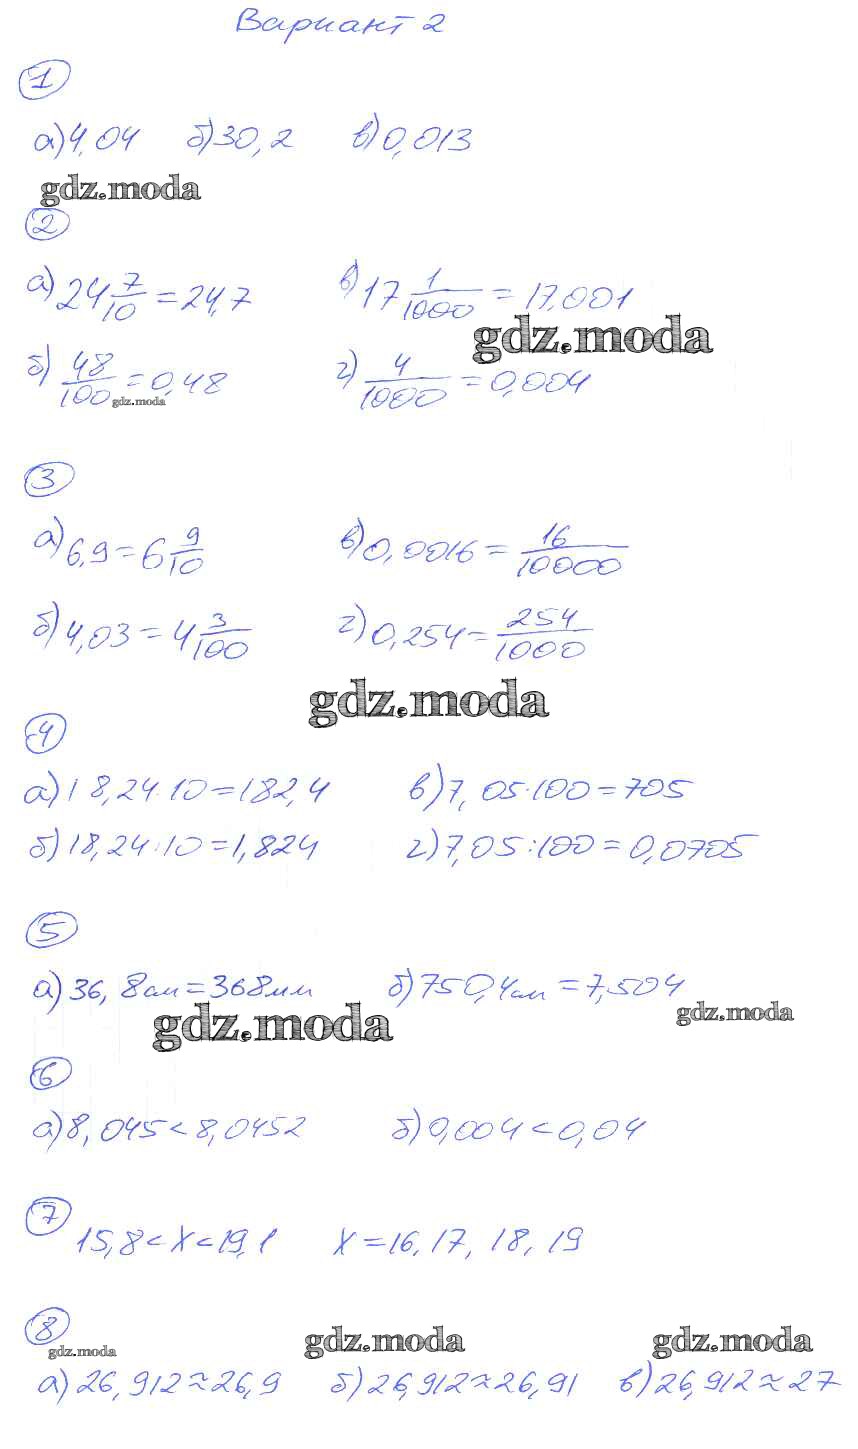 Вариант 2
1
а) 4,04 б) 30,2 в) 0,013
gdz.moda
2
а) 24 7/10 = 24,7 в) 17 1/1000 = 17,001
gdz.moda
б) 48/100 = 0,48 г) 4/1000 = 0,004
gdz.moda
3
а) 6,9 = 6 9/10 в) 0,0016 = 16/10000
б) 4,03 = 4 3/100 г) 0,254 = 254/1000
gdz.moda
4
а) 18,24·10 = 182,4 в) 7,05·100 = 705
б) 18,24:10 = 1,824 г) 7,05:100 = 0,0705
5
а) 36,8см = 368мм б) 750,4см = 7,504
gdz.moda gdz.moda
6
а) 8,045 < 8,0452 б) 0,004 < 0,04
7
15,8 < x < 19,1 x = 16, 17, 18, 19
8
gdz.moda gdz.moda gdz.moda
а) 26,912 ≈ 26,9 б) 26,912 ≈ 26,91 в) 26,912 ≈ 27